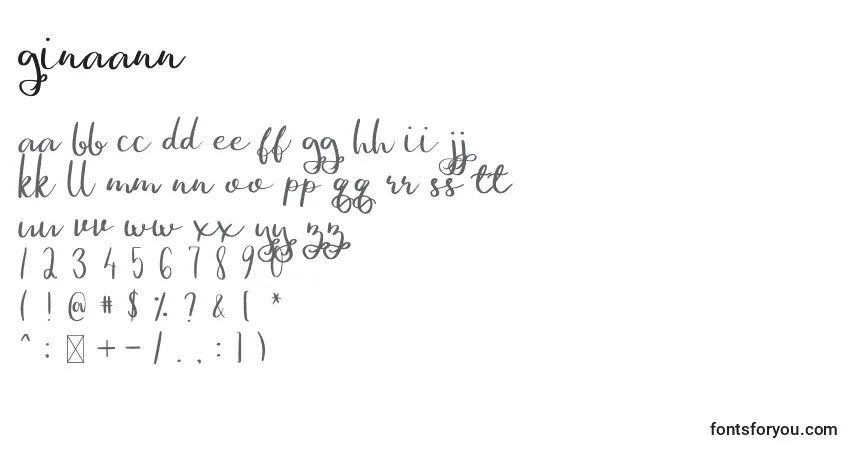 ginaann
aa bb cc dd ee ff gg hh ii jj
kk ll mm nn oo pp qq rr ss tt
uu vv ww xx yy zz
1 2 3 4 5 6 7 8 9 0
( ! @ # $ % ? & [ *
^ : + - / . , : ] )
fontsforyou.com